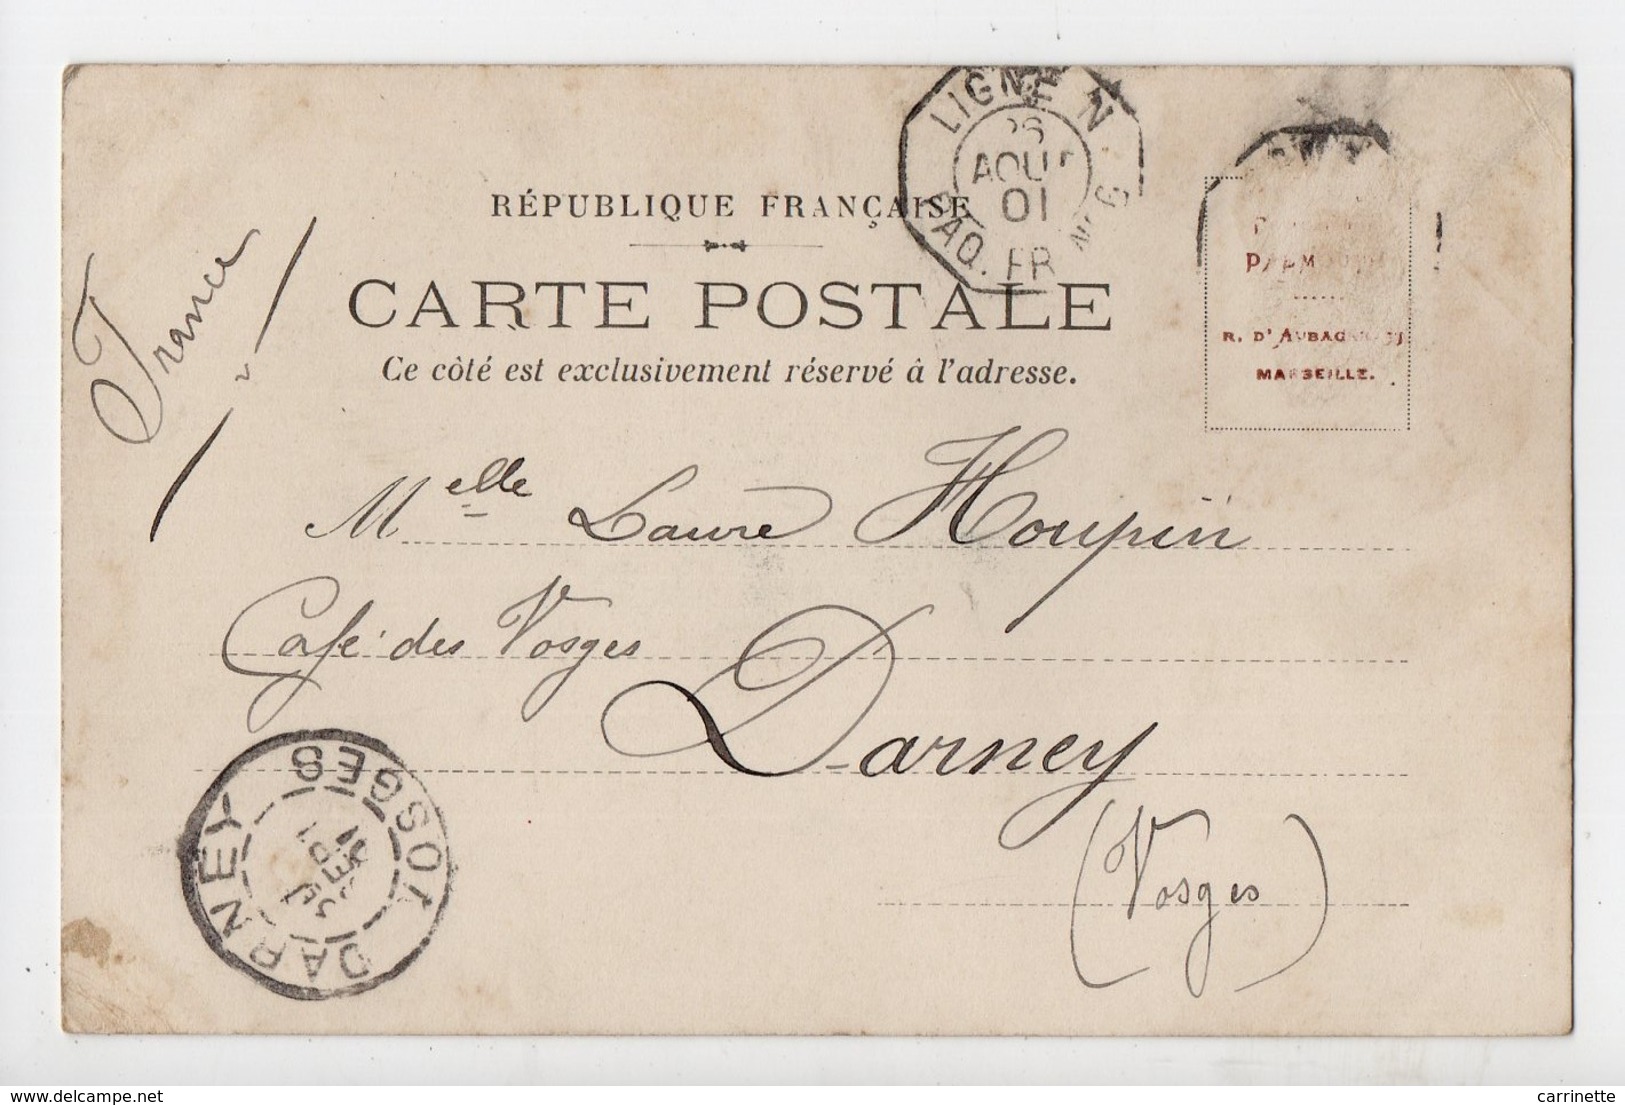 LIGNE N
AOUT
01
PAQ. FR. N° 6
RÉPUBLIQUE FRANÇAISE
CARTE POSTALE
Ce côté est exclusivement réservé à l'adresse.
France
R. D'AUBAGNE
MARSEILLE.
Melle Laure Houpin
Café des Vosges
Darney
(Vosges)
DARNEY VOSGES
delcampe.net
carrinette